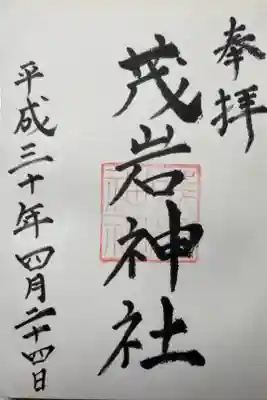 奉拝
茂岩神社
平成三十年四月二十四日